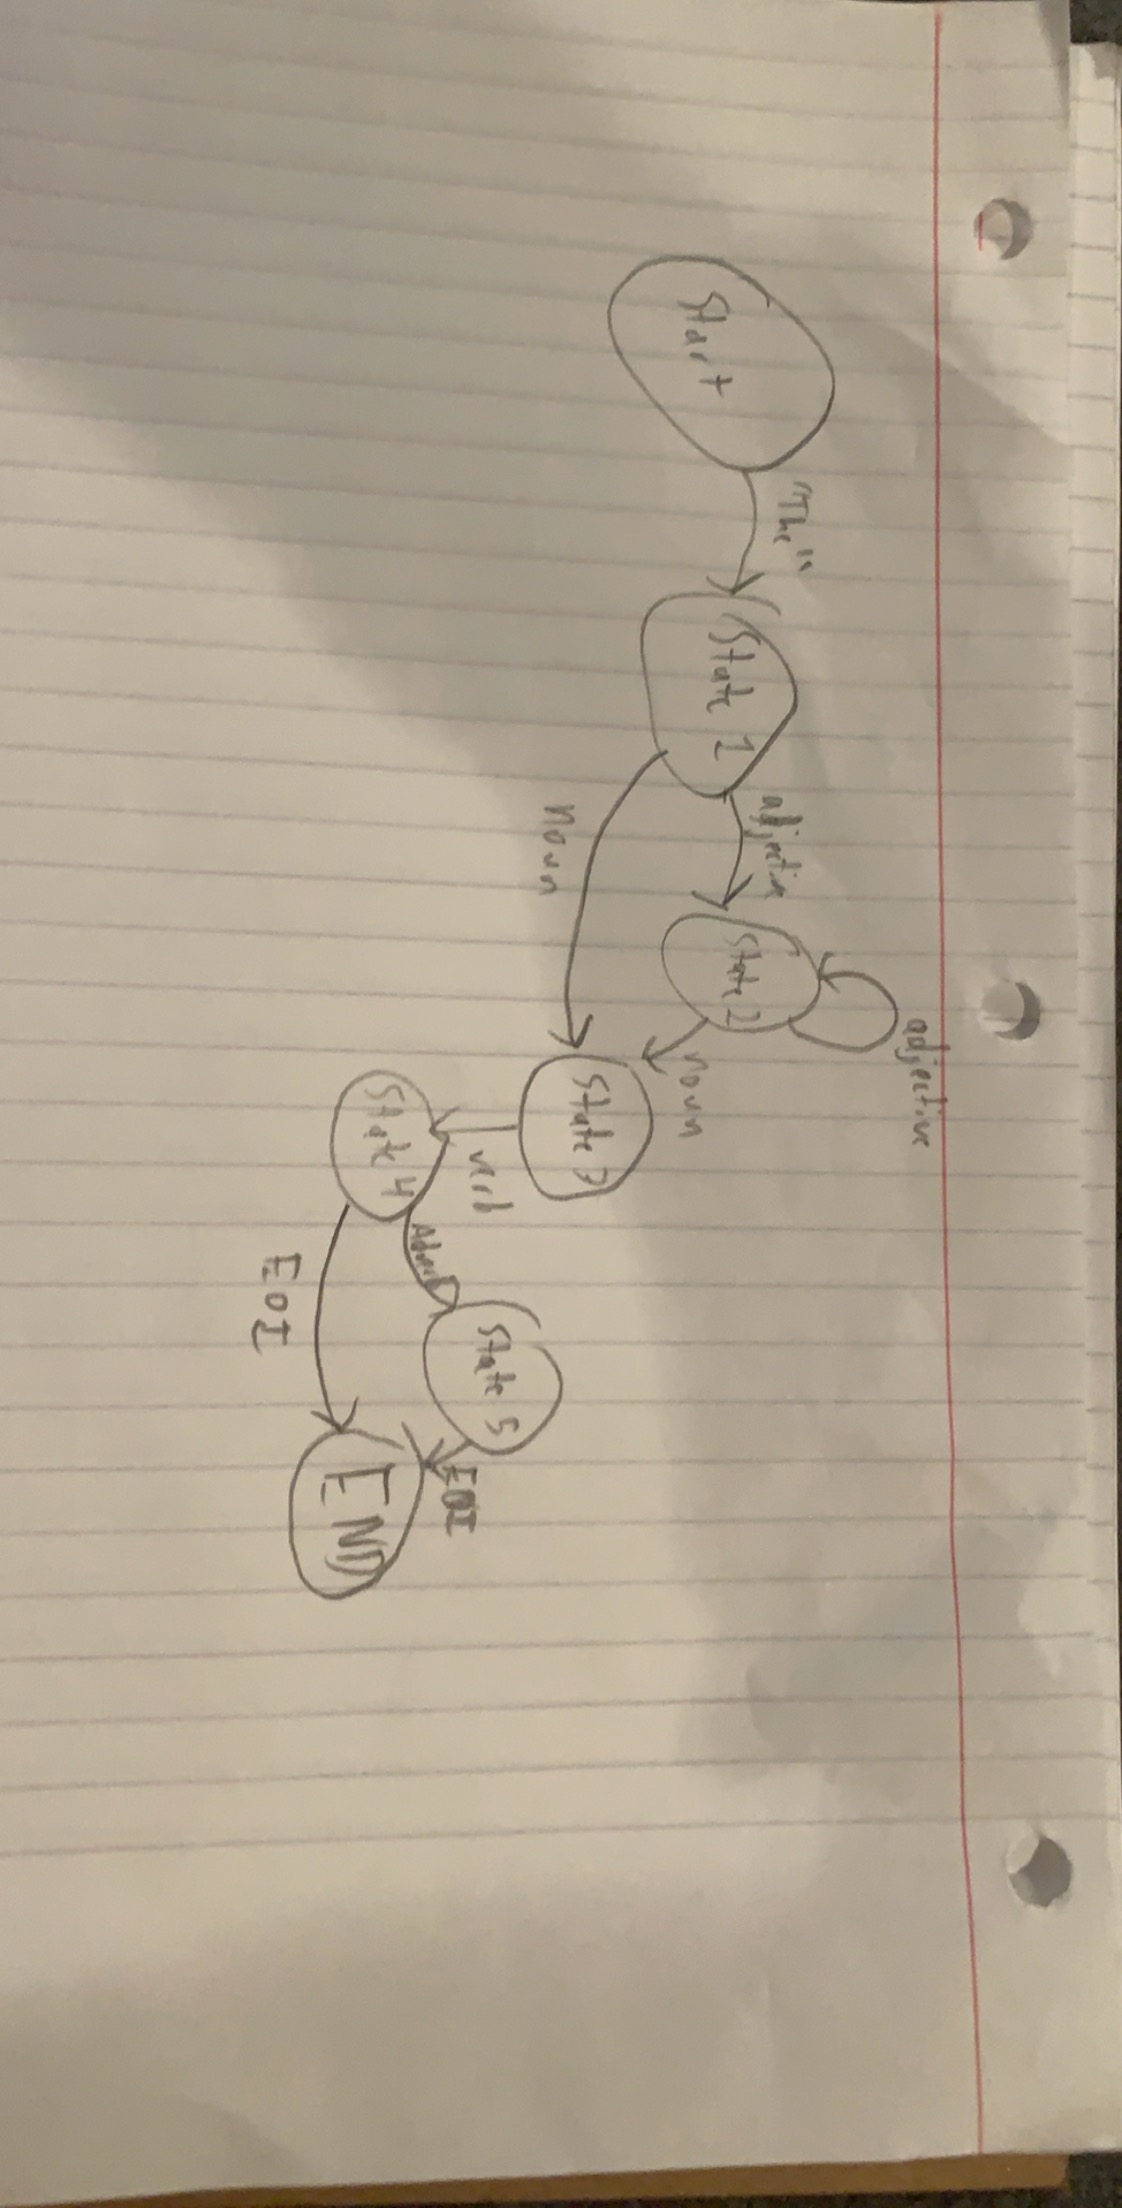 Start
"The"
State 1
adjective
noun
State 2
adjective
noun
State 3
verb
State 4
Adverb
EOI
State 5
EOI
END